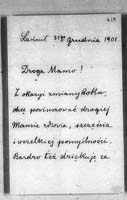 Łańcut 31go Grudnia 1901
Droga Mamo!
Z okazyi zmiany Roku,
chcę powinszować drogiej
Mamie zdrowia, szczęścia
i wszelkiej pomyślności.
Bardzo też dziękuję za